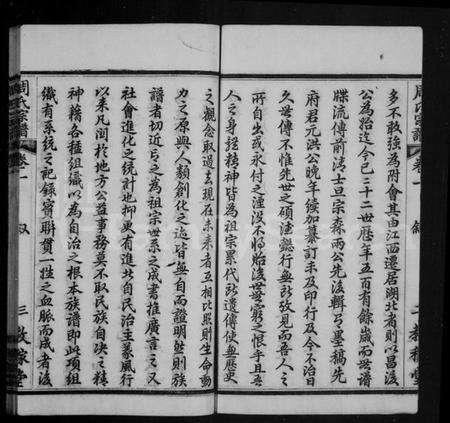 多不敢強為附會其由江西遷居湖北者則以昌浚
公為始迄今已三十二世歷年五百有餘歲而世譜
牒流傳前清士旦宗森兩公先後輯有墨稿先
府君元洪公晚年續加纂訂未及印行及今不治日
久世傳不惟先世之碩德懿行無所攷見而吾人之
所自出或永付之湮沒不將貽後世無窮之恨乎且吾
人之身軀精神皆為祖宗累代所遺傳使無歷史
之觀念取過去現在未來者互相比照則生命動
力之原與人類創化之迹皆無自而證明然則族
譜者切近言之為祖宗世系之成書推廣言之又
社會進化之統計也抑更有進此自民治主義風行
以來凡關於地方公益事務莫不取民族自決之精
神藉各種組織以為自治之根本族譜即此項組
織有系統之記錄實聯貫一姓之血脈而成者後
周氏宗譜
卷一
敘
三教稼堂